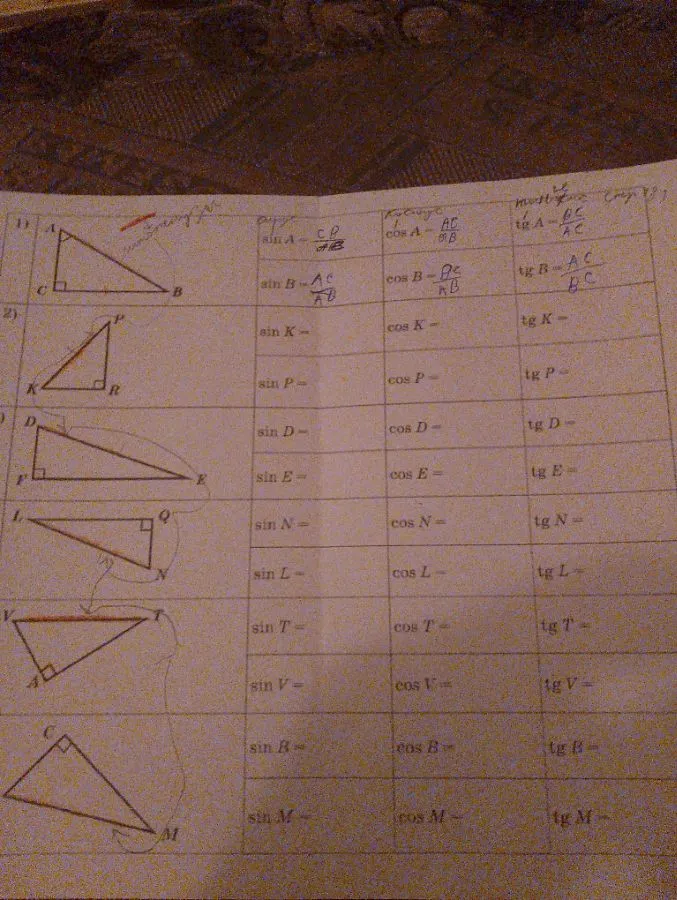 1) A C B
sin A = CB/AB cos A = AC/AB tg A = BC/AC
sin B = AC/AB cos B = BC/AB tg B = AC/BC
2) P K R
sin K = cos K = tg K =
sin P = cos P = tg P =
) D F E
sin D = cos D = tg D =
sin E = cos E = tg E =
L Q N
sin N = cos N = tg N =
sin L = cos L = tg L =
V T A
sin T = cos T = tg T =
sin V = cos V = tg V =
C M
sin B = cos B = tg B =
sin M = cos M = tg M =